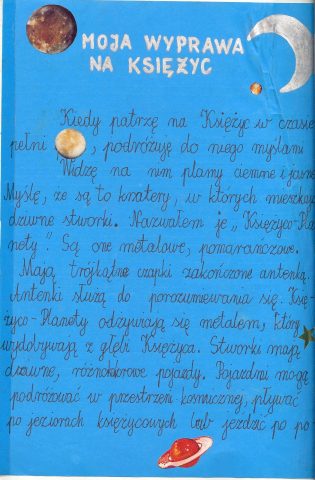 MOJA WYPRAWA
NA KSIĘŻYC
Kiedy patrzę na Księżyc w czasie
pełni , podróżuję do niego myślami
Widzę na nim plamy ciemne i jasne
Myślę, że są to kratery, w których mieszkają
dziwne stworki. Nazwałem je „Księżyco-Pla-
nety". Są one metalowe, pomarańczowe.
Mają trójkątne czapki zakończone antenką.
Antenki służą do porozumewania się. Księ-
życo-Planety odżywiają się metalem, który
wydobywają z głębi Księżyca. Stworki mają
dziwne, różnokolorowe pojazdy. Pojazdni mogą
podróżować w przestrzeni kosmicznej, pływać
po jeziorach księżycowych lub jeździć po po-